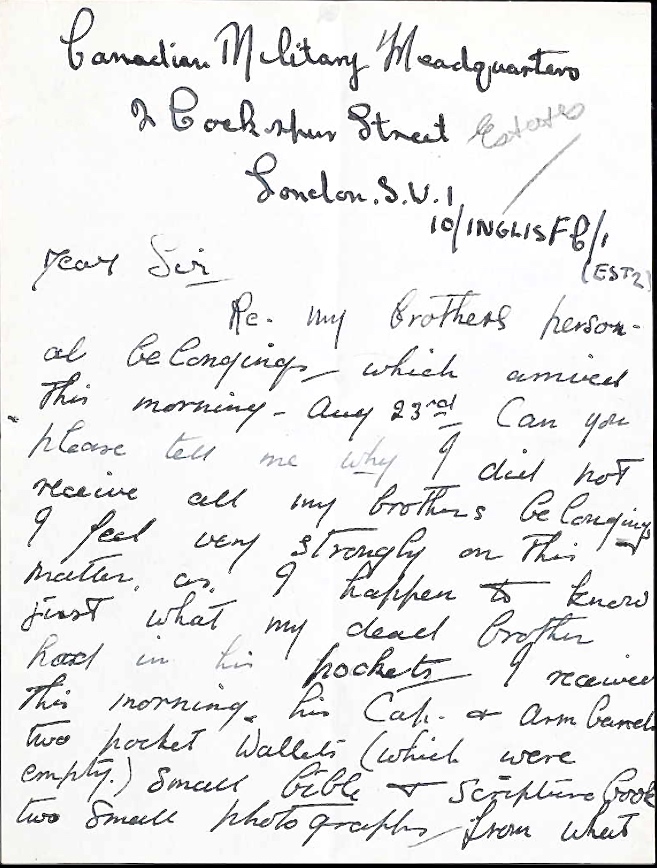 Canadian Military Headquarters
2 Cockspur Street
Estates
London. S.W.1
10/INGLIS F G/1
(EST2)
Dear Sir
Re- my brothers person-
al belongings which arrived
this morning - Aug 23rd Can you
please tell me why I did not
receive all my brothers belongings
I feel very strongly on this -
matter, as I happen to know
just what my dead brother
had in his pockets I received
this morning, his Cap. & arm band
two pocket wallets (which were
empty.) Small bible & Scripture book
two small photographs from what